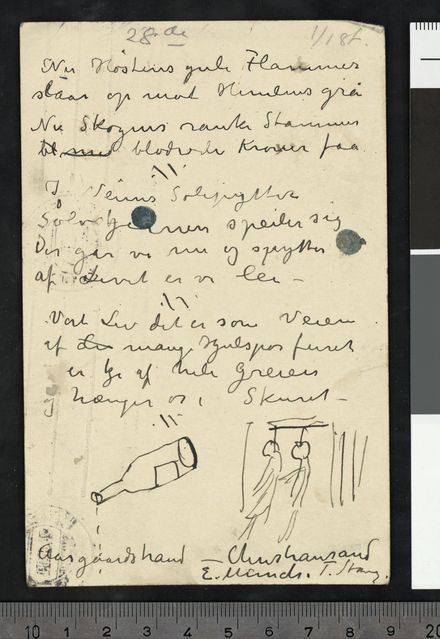 28de 1/1 8f.
Nu Høstens gule Flammer
slaar op mod Himlens grå
Nu Skogens ranke Stammer
blodrøde Kroner faa
I Veiens Sølepytter
Sølvstjernen speiler sig
Der går vi nu og spytter
af Livet er vi lei –
Vort Liv det er som Veien
af mange Hjulspor furet
er af hele Greien
og hænger os i Skuret –
Aasgaardstrand – Christiansand
E. Munch. T. Stang
10 1 2 3 4 5 6 7 8 9 20